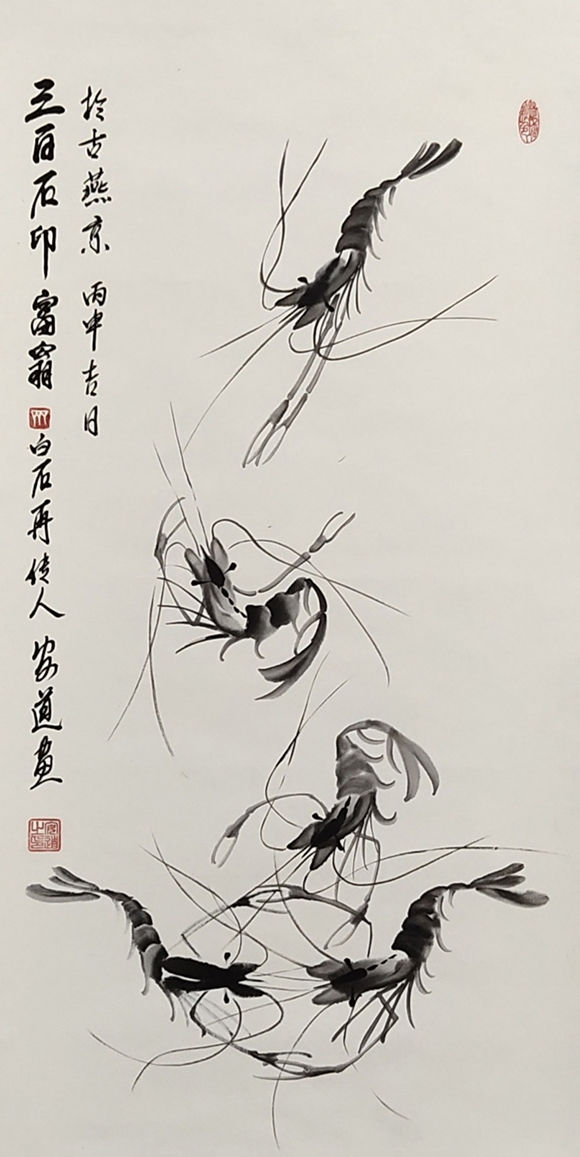 三百石印富翁 白石再传人 安道画
於古燕京 丙申吉日